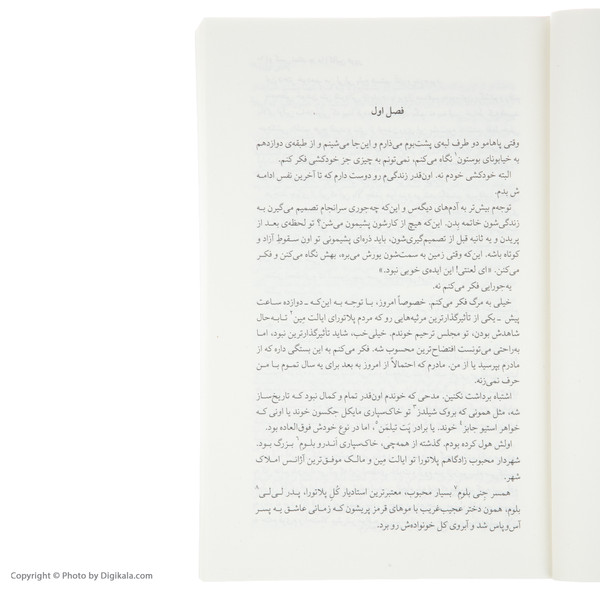 فصل اول
وقتی پاهامو دو طرف لبه‌ی پشت‌بوم می‌ذارم و این‌جا می‌شینم و از طبقه‌ی دوازدهم
به خیابونای بوستون۱ نگاه می‌کنم، نمی‌تونم به چیزی جز خودکشی فکر کنم.
البته خودکشی خودم نه. اون‌قدر زندگی‌م رو دوست دارم که تا آخرین نفس ادامه
ش بدم.
توجه‌م بیش‌تر به آدم‌های دیگه‌س و این‌که چه‌جوری سرانجام تصمیم می‌گیرن به
زندگی‌شون خاتمه بدن. این‌که هیچ از کارشون پشیمون می‌شن؟ تو لحظه‌ی بعد از
پریدن و یه ثانیه قبل از تصمیم‌گیری‌شون، باید ذره‌ای پشیمونی تو اون سقوط آزاد و
کوتاه باشه. این‌که وقتی زمین به سمت‌شون یورش می‌بره، بهش نگاه می‌کنن و فکر
می‌کنن. «ای لعنتی! این ایده‌ی خوبی نبود.»
یه‌جورایی فکر می‌کنم نه.
خیلی به مرگ فکر می‌کنم. خصوصاً امروز، با توجه به این‌که ـ دوازده ساعت
پیش ـ یکی از تأثیرگذارترین مرثیه‌هایی رو که مردم پلاتورای ایالت مِین۲ تا به حال
شاهدش بودن، تو مجلس ترحیم خوندم. خیلی‌خب، شاید تأثیرگذارترین نبود، اما
به‌راحتی می‌تونست افتضاح‌ترین محسوب شه. فکر می‌کنم به این بستگی داره که از
مادرم بپرسید یا از من. مادرم که احتمالاً از امروز به بعد برای یه سال تموم با من
حرف نمی‌زنه.
اشتباه برداشت نکنین. مدحی که خوندم اون‌قدر تمام و کمال نبود که تاریخ‌ساز
شه، مثل همونی که بروک شیلدز۳ تو خاک‌سپاری مایکل جکسون خوند یا اونی که
خواهر استیو جابز۴ خوند. یا برادر پَت تیلمَن۵، اما در نوع خودش فوق‌العاده بود.
اولش هول کرده بودم. گذشته از همه‌چی، خاک‌سپاری اَندرو بلوم۶ بزرگ بود.
شهردار محبوب زادگاهم پلاتورا تو ایالت مِین و مالک موفق‌ترین آژانس املاک
شهر.
همسر جِنی بلوم۷ بسیار محبوب، معتبرترین استادیار کُل پلاتورا، پدر لی‌لی۸
بلوم، همون دختر عجیب‌غریب با موهای قرمز پریشون که زمانی عاشق یه پسر
آس‌وپاس شد و آبروی کل خونواده‌ش رو برد.
Copyright © Photo by Digikala.com